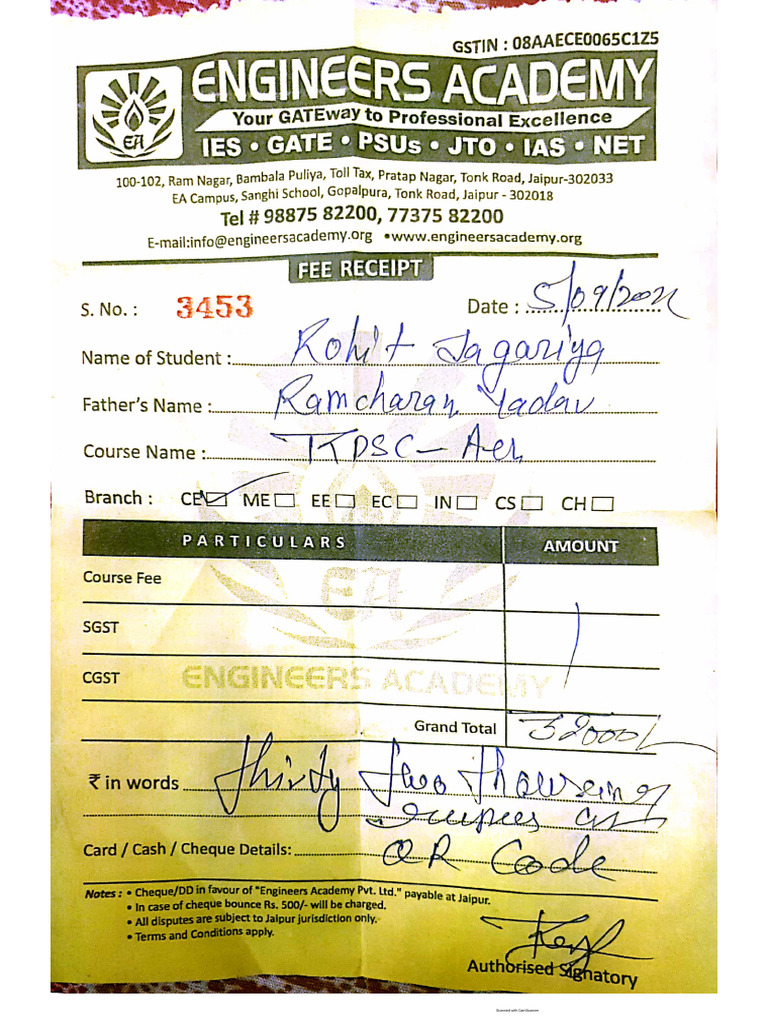 GSTIN : 08AAECE0065C1Z5
ENGINEERS ACADEMY
Your GATEway to Professional Excellence
IES • GATE • PSUs • JTO • IAS • NET
EA
100-102, Ram Nagar, Bambala Puliya, Toll Tax, Pratap Nagar, Tonk Road, Jaipur-302033
EA Campus, Sanghi School, Gopalpura, Tonk Road, Jaipur - 302018
Tel # 98875 82200, 77375 82200
E-mail:info@engineersacademy.org •www.engineersacademy.org
FEE RECEIPT
S. No. : 3453 Date : 5/09/202
Name of Student : Rohit Jagariya
Father's Name : Ramcharan Yadav
Course Name : RPSC - Aen
Branch : CE ME EE EC IN CS CH
PARTICULARS AMOUNT
Course Fee
SGST
EA
CGST
ENGINEERS ACADEMY
Grand Total 32000/-
₹ in words thirty two thousand
rupees
Card / Cash / Cheque Details: QR Code
Notes : • Cheque/DD in favour of "Engineers Academy Pvt. Ltd." payable at Jaipur.
• In case of cheque bounce Rs. 500/- will be charged.
• All disputes are subject to Jaipur jurisdiction only.
• Terms and Conditions apply.
Authorised Signatory
Scanned with CamScanner